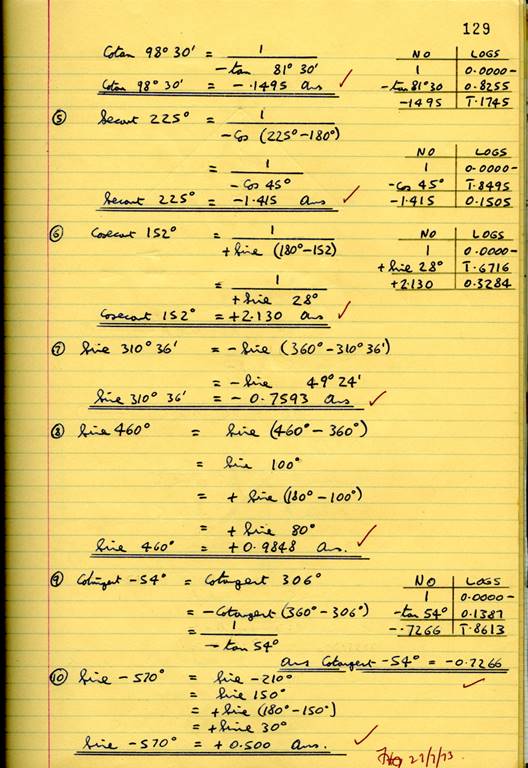 129
Cotan 98° 30' = 1 / -tan 81° 30'
NO | LOGS
1 | 0.0000-
-tan 81°30 | 0.8255
-1495 | T.1745
Cotan 98° 30' = -.1495 Ans ✓
⑤ Secant 225° = 1 / -Cos (225°-180°)
= 1 / -Cos 45°
NO | LOGS
1 | 0.0000-
-Cos 45° | T.8495
-1.415 | 0.1505
Secant 225° = -1.415 Ans ✓
⑥ Cosecant 152° = 1 / +Sine (180°-152)
NO | LOGS
1 | 0.0000-
+Sine 28° | T.6716
+2.130 | 0.3284
= 1 / +Sine 28°
Cosecant 152° = +2.130 Ans ✓
⑦ Sine 310° 36' = -Sine (360°-310°36')
= -Sine 49° 24'
Sine 310° 36' = -0.7593 Ans ✓
⑧ Sine 460° = Sine (460°-360°)
= Sine 100°
= + Sine (180°-100°)
= + Sine 80°
Sine 460° = +0.9848 Ans. ✓
⑨ Cotangent -54° = Cotangent 306°
NO | LOGS
1 | 0.0000-
-tan 54° | 0.1387
-.7266 | T.8613
= -Cotangent (360°-306°)
= 1 / -tan 54°
Ans Cotangent -54° = -0.7266 ✓
⑩ Sine -570° = Sine -210°
= Sine 150°
= +Sine (180°-150°)
= +Sine 30°
Sine -570° = +0.500 Ans. ✓